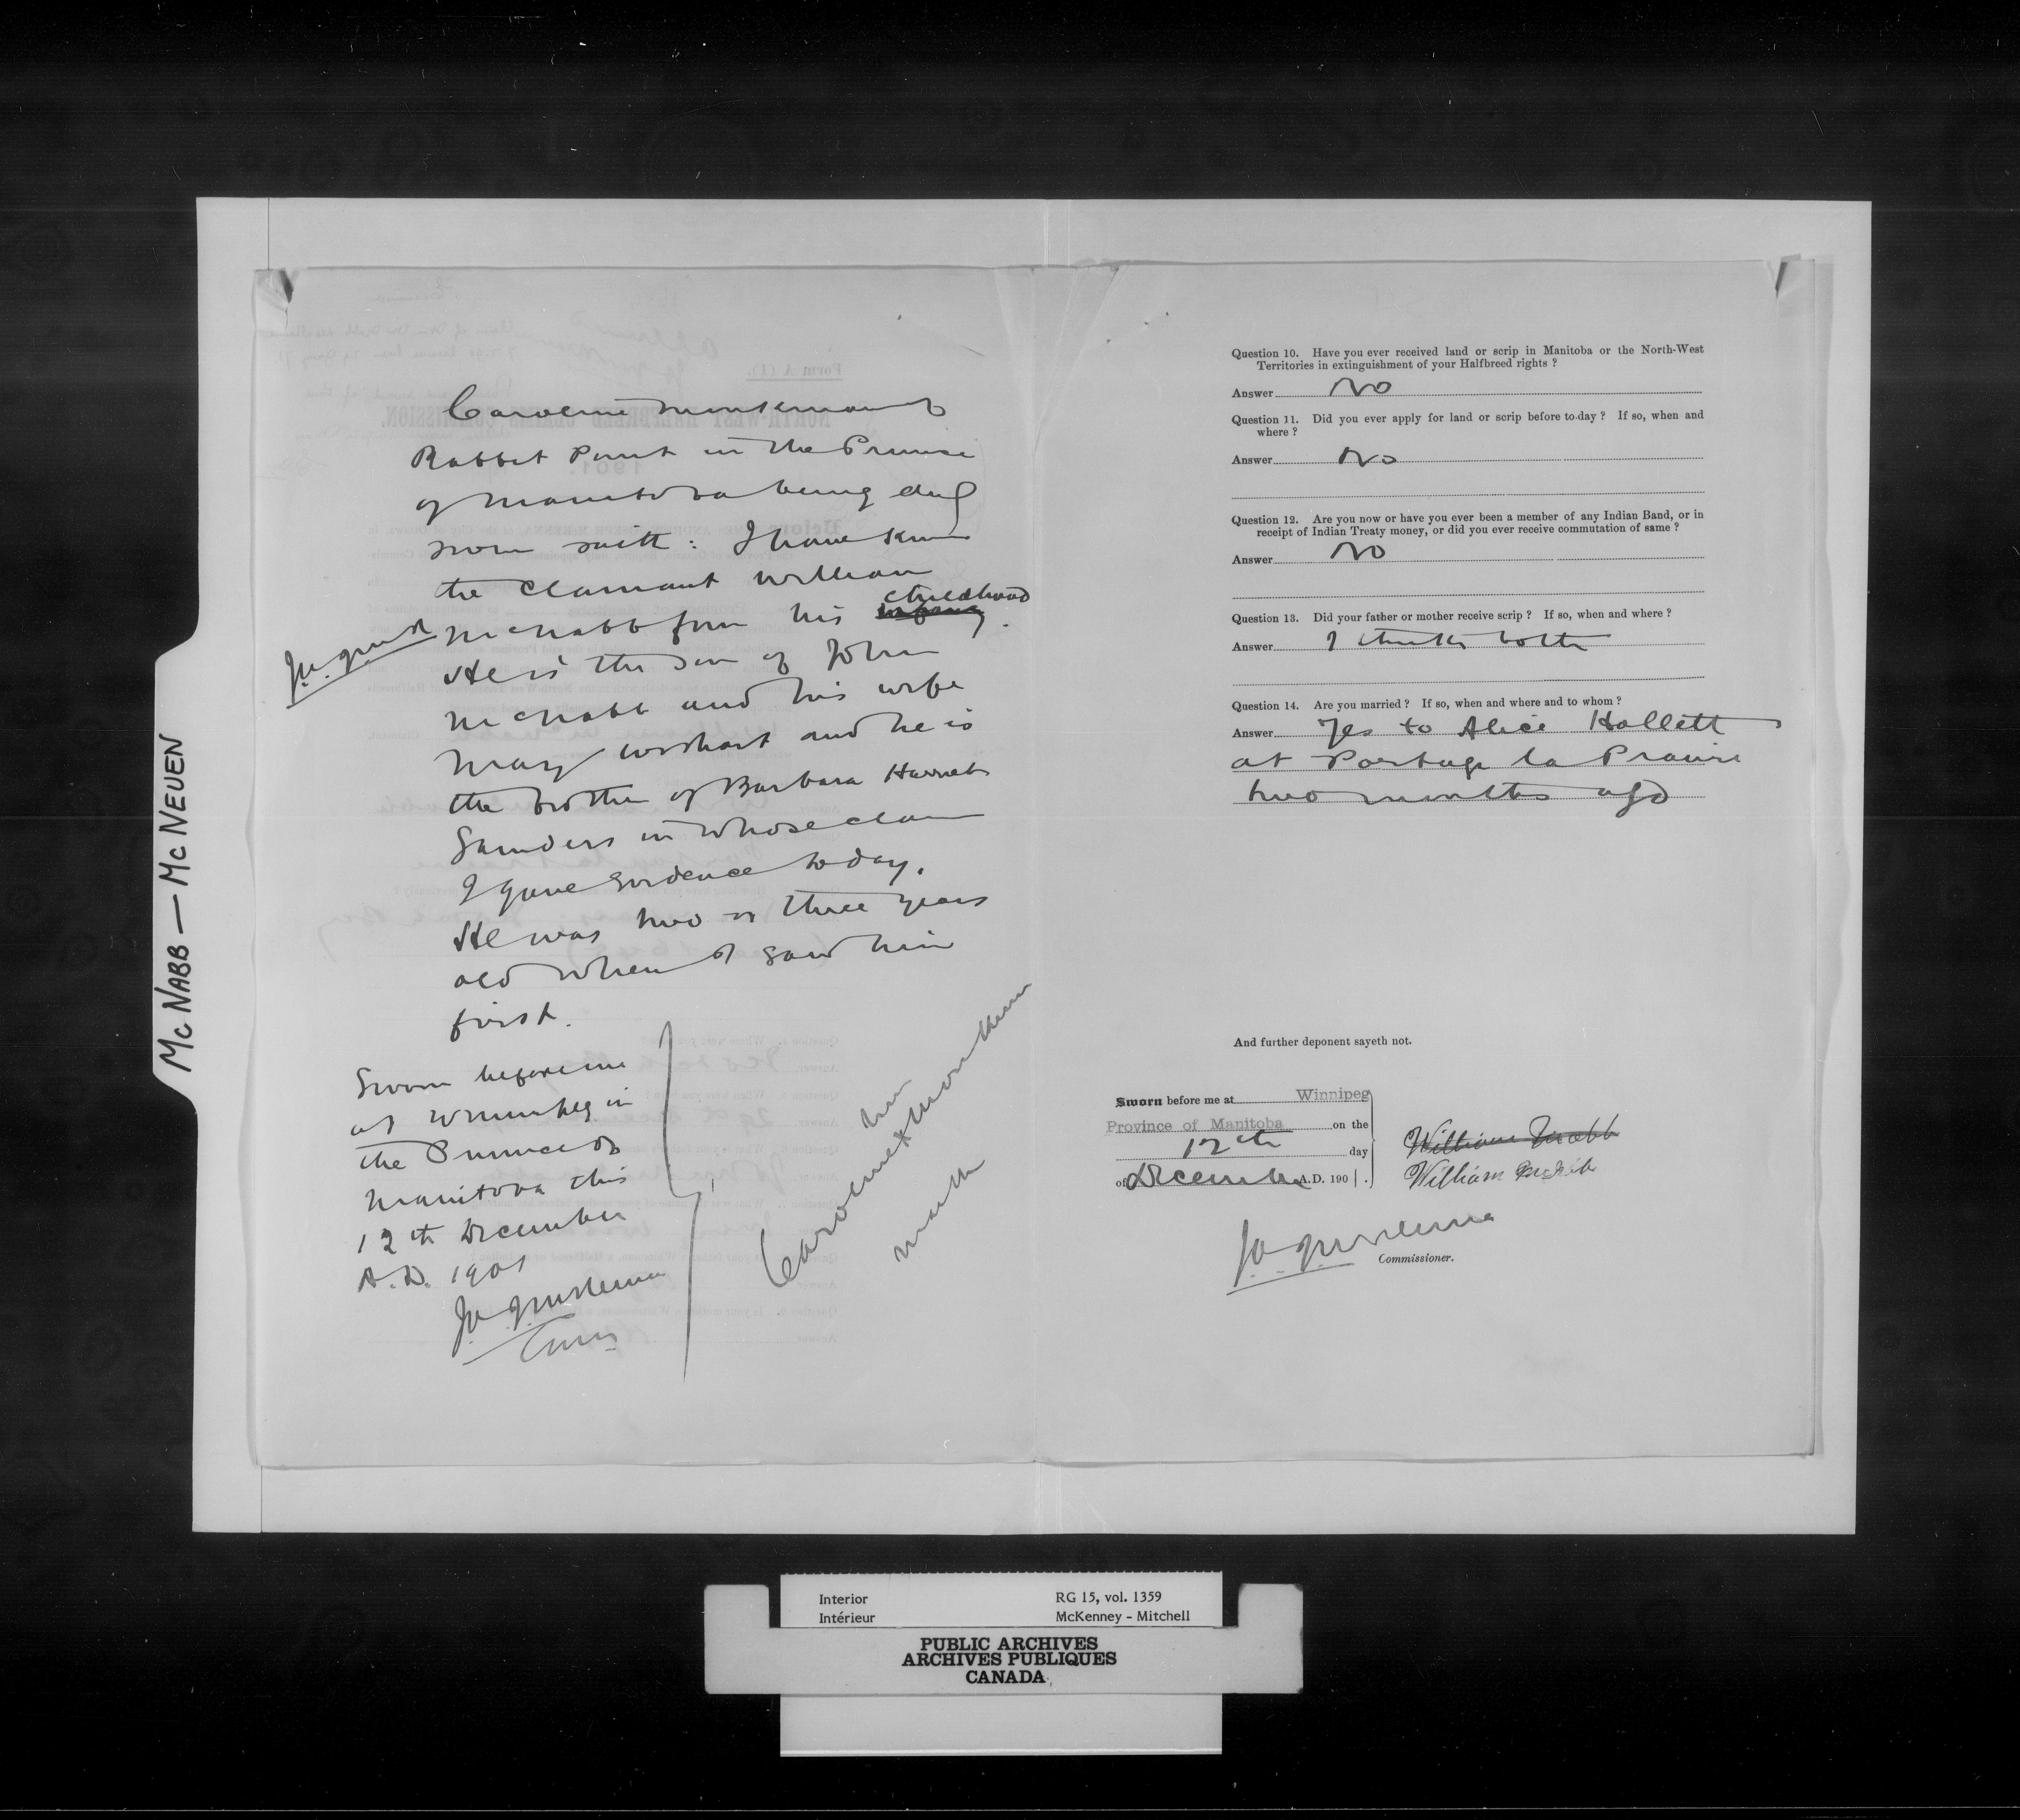 McNabb — McNeuen
Caroline Monkman of
Rabbit Point in the Province
of Manitoba being duly
sworn saith: I have known
the claimant William
McNabb from his infancy childhood.
He is the son of John
McNabb and his wife
Mary Wishart and he is
the brother of Barbara Harriet
Saunders in whose claim
I gave evidence today.
He was two or three years
old when I saw him
first.
Sworn before me
at Winnipeg in
the Province of
Manitoba this
12th December
A.D. 1901
J.A.J. McKenna
Comr
her
Caroline x Monkman
mark
Question 10. Have you ever received land or scrip in Manitoba or the North-West
Territories in extinguishment of your Halfbreed rights ?
Answer No
Question 11. Did you ever apply for land or scrip before to-day ? If so, when and
where ?
Answer No
Question 12. Are you now or have you ever been a member of any Indian Band, or in
receipt of Indian Treaty money, or did you ever receive commutation of same ?
Answer No
Question 13. Did your father or mother receive scrip ? If so, when and where ?
Answer I think both
Question 14. Are you married ? If so, when and where and to whom ?
Answer Yes to Alice Hallett
at Portage la Prairie
two months ago
And further deponent sayeth not.
Sworn before me at Winnipeg
Province of Manitoba on the
12th day
of December A.D. 1901.
William McNabb
William McNabb
J.A.J. McKenna
Commissioner.
Interior RG 15, vol. 1359
Intérieur McKenney - Mitchell
PUBLIC ARCHIVES
ARCHIVES PUBLIQUES
CANADA